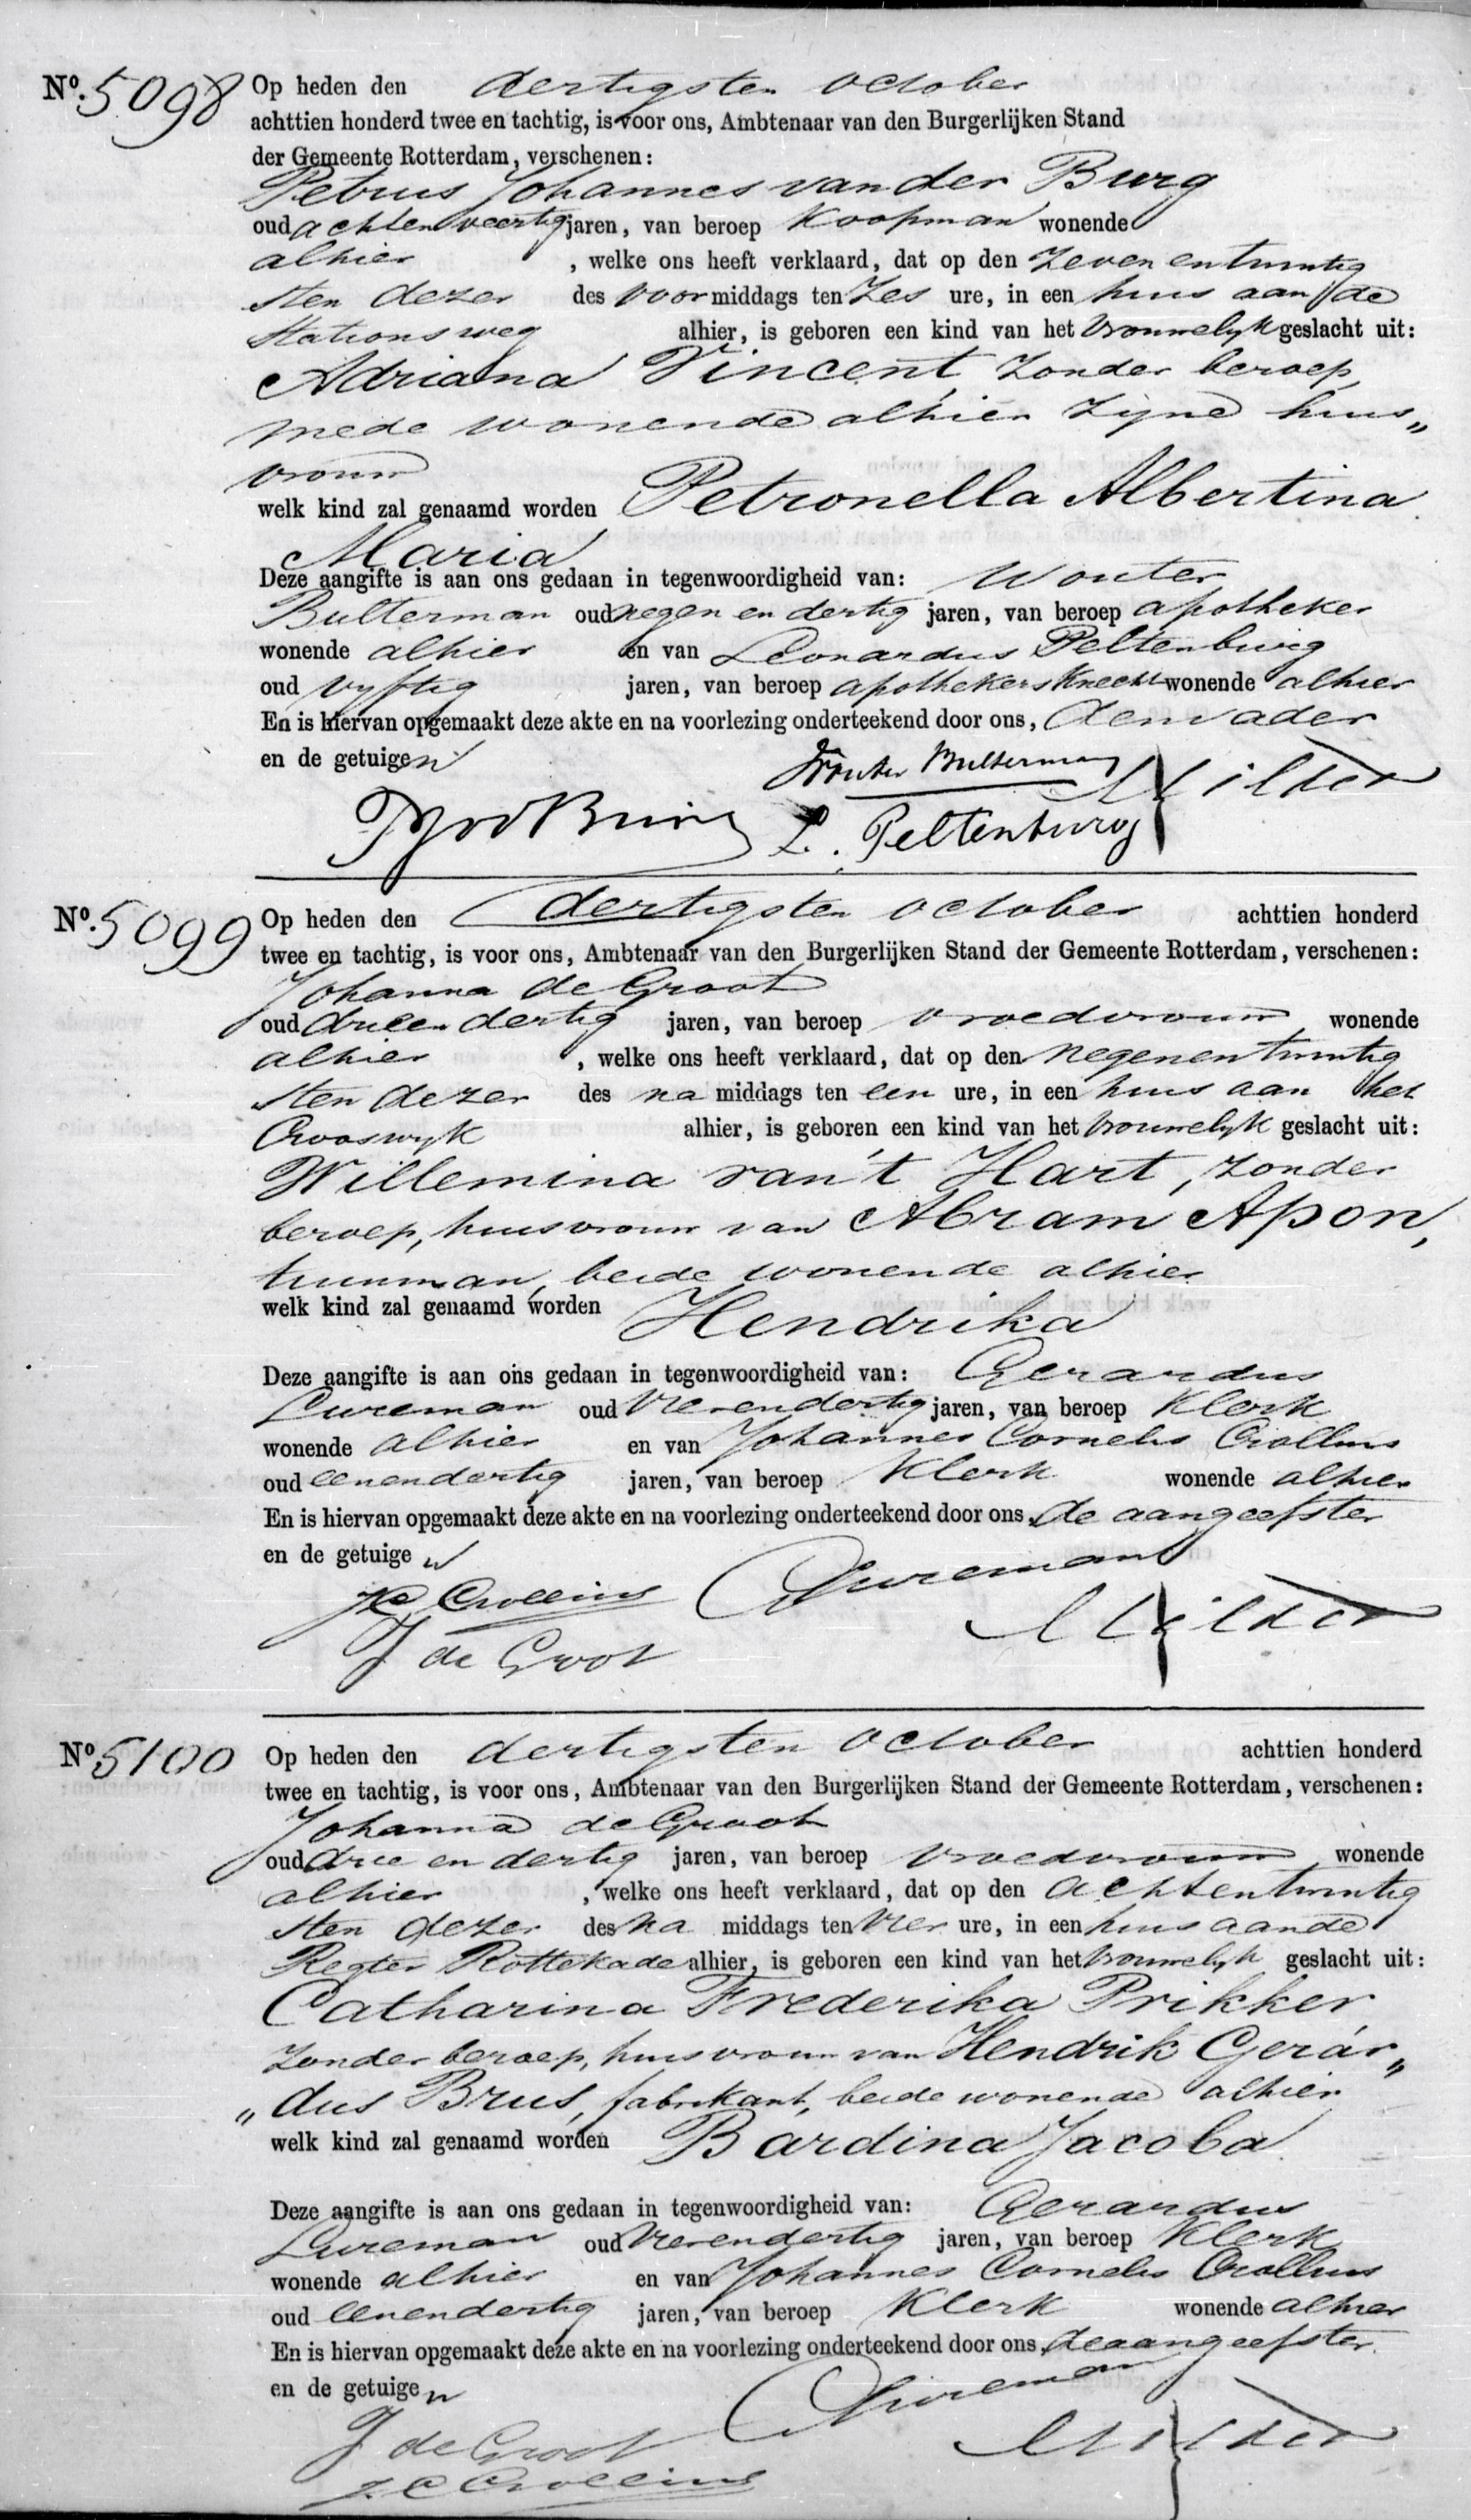 No. 5098 Op heden den dertigsten october
achttien honderd twee en tachtig, is voor ons, Ambtenaar van den Burgerlijken Stand
der Gemeente Rotterdam, verschenen:
Petrus Johannes van der Burg
oud achtenveertig jaren, van beroep Koopman wonende
alhier , welke ons heeft verklaard, dat op den zeven entwintig
sten dezer des voor middags ten zes ure, in een huis aan de
Stationsweg alhier, is geboren een kind van het vrouwelyk geslacht uit:
Adriana Vincent, zonder beroep,
mede wonende alhier zyne huis„
vrouw
welk kind zal genaamd worden Petronella Albertina
Maria
Deze aangifte is aan ons gedaan in tegenwoordigheid van: Wouter
Bulterman oud negen en dertig jaren, van beroep apotheker
wonende alhier en van Leonardus Peltenburg
oud vyftig jaren, van beroep apothekersknecht wonende alhier
En is hiervan opgemaakt deze akte en na voorlezing onderteekend door ons, den vader
en de getuigen
Wouter Bulterman Milder
PJvdBurg L. Peltenburg
No. 5099 Op heden den dertigsten october achttien honderd
twee en tachtig, is voor ons, Ambtenaar van den Burgerlijken Stand der Gemeente Rotterdam, verschenen:
Johanna de Groot
oud drieen dertig jaren, van beroep vroedvrouw wonende
alhier , welke ons heeft verklaard, dat op den negenentwintig
sten dezer des na middags ten een ure, in een huis aan het
Crooswyk alhier, is geboren een kind van het vrouwelyk geslacht uit:
Willemina van 't Hart, zonder
beroep, huisvrouw van Abram Apon,
tuinman, beide wonende alhier
welk kind zal genaamd worden Hendrika
Deze aangifte is aan ons gedaan in tegenwoordigheid van: Gerardus
Lureman oud vierendertig jaren, van beroep Klerk
wonende alhier en van Johannes Cornelis Crollius
oud eenendertig jaren, van beroep Klerk wonende alhier
En is hiervan opgemaakt deze akte en na voorlezing onderteekend door ons, de aangeefster
en de getuigen
JC Crollius GLureman
J de Groot Milder
No. 5100 Op heden den dertigsten october achttien honderd
twee en tachtig, is voor ons, Ambtenaar van den Burgerlijken Stand der Gemeente Rotterdam, verschenen:
Johanna de Groot
oud drie en dertig jaren, van beroep vroedvrouw wonende
alhier , welke ons heeft verklaard, dat op den achtentwintig
sten dezer des na middags ten vier ure, in een huis aan de
Regter Rottekade alhier, is geboren een kind van het vrouwelyk geslacht uit:
Catharina Frederika Prikker
zonder beroep, huisvrouw van Hendrik Gerár„
„dus Brus, fabrikant, beide wonende alhier
welk kind zal genaamd worden Bardina Jacoba
Deze aangifte is aan ons gedaan in tegenwoordigheid van: Gerardus
Lureman oud vierendertig jaren, van beroep Klerk
wonende alhier en van Johannes Cornelis Crollius
oud eenendertig jaren, van beroep Klerk wonende alhier
En is hiervan opgemaakt deze akte en na voorlezing onderteekend door ons, de aangeefster
en de getuigen GLureman
J de Groot Milder
J C Crollius